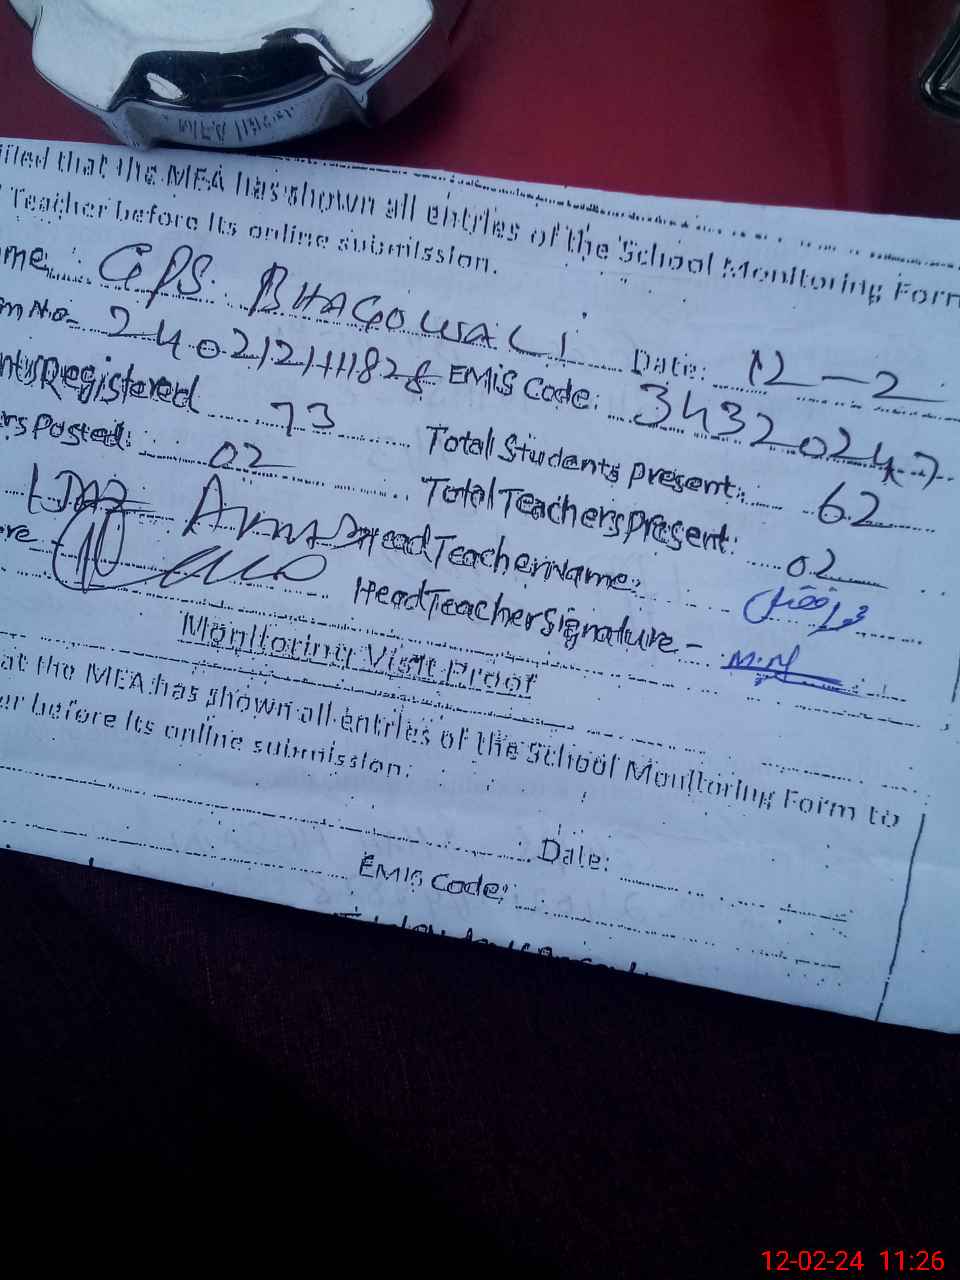 that the MEA has shown all entries of the School Monitoring Form
Teacher before Its online submission.
me: GPS. BHAGOWALI Date: 12-2
m No- 2402121111828 EMIS Code: 343202047
Registered 73 Total Students present: 62
rs Posted: 02 Total Teachers Present: 02
Head Teacher Name:
re Head Teacher Signature - M.N
Monitoring Visit Proof
at the MEA has shown all entries of the School Monitoring Form to
er before Its online submission.
Date:
EMIS Code:
12-02-24 11:26